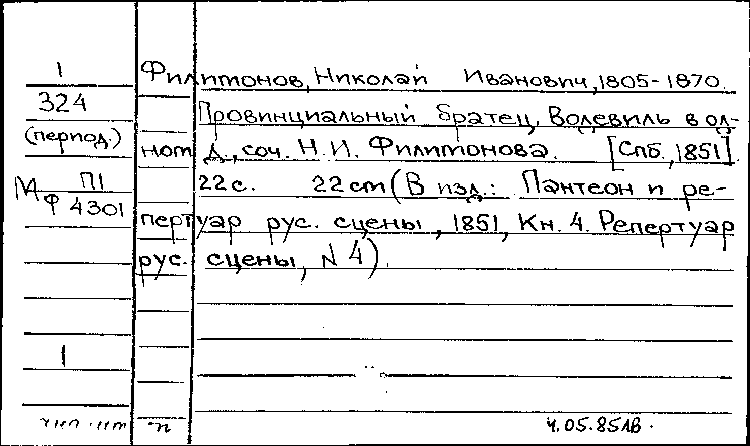 1
324
(период.)
М П1
Ф 4301
1
Филимонов, Николай Иванович, 1805-1870.
Провинциальный братец, Водевиль в од-
ном д., соч. Н. И. Филимонова. [Спб., 1851]
22 с. 22 cm (В изд.: Пантеон и ре-
пертуар рус. сцены, 1851, Кн. 4. Репертуар
рус. сцены, N 4).
4.05.85 ЛВ.